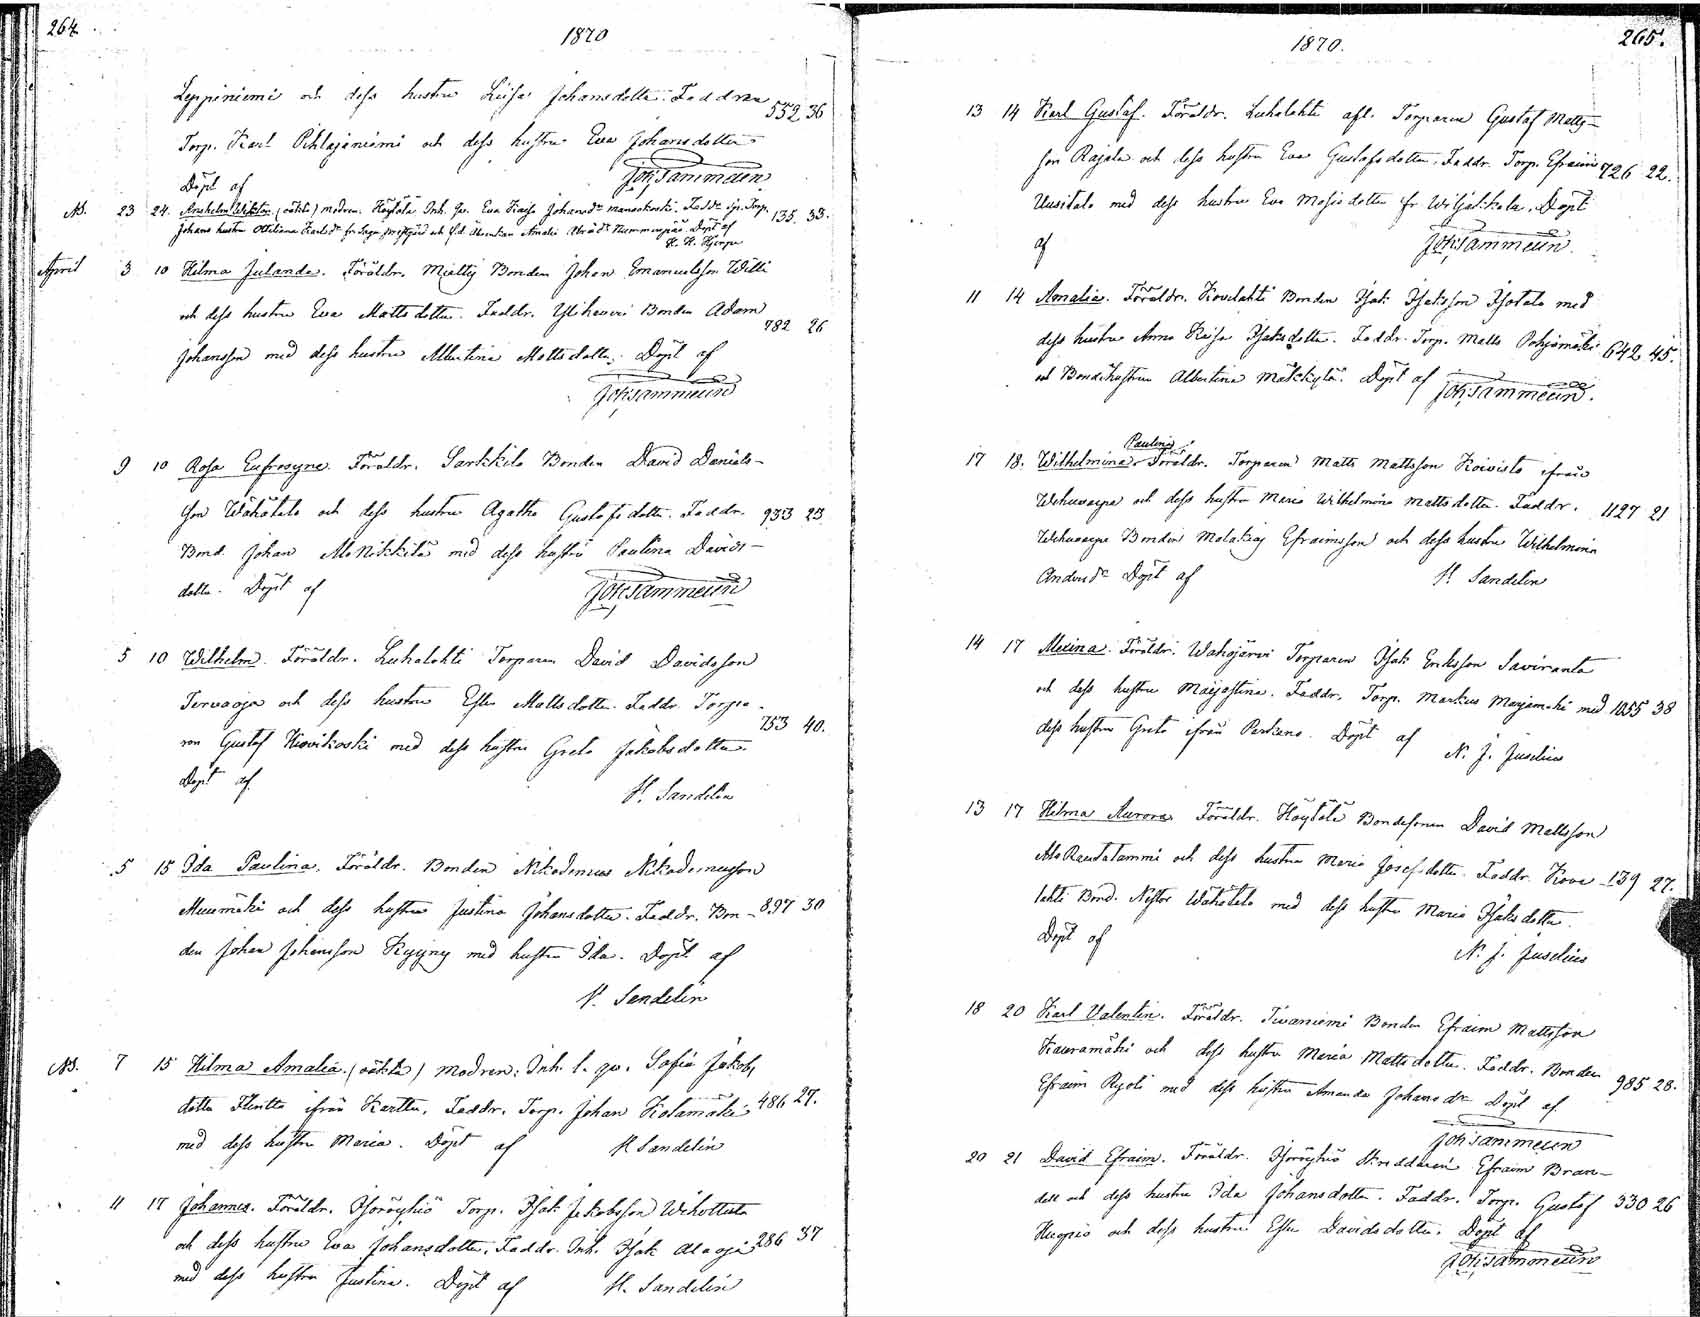 264.
1870
Leppiniemi och dess hustru Liisa Johansdotter. Faddrar 552 36
Torp. Karl Pihlajaniemi och dess hustru Eva Johansdotter
Döpt af Joh: Tammelin
NB. 23 24. (oäkta) modren: Höytölä Inh. Eva Kaisa Johansdr Faddr. Torp. 135. 33.
Johans hustru Karlsdr fr. och Amalia Döpt af
April 3 10 Hilma Julanda. Föräldr. Miettij Bonden Johan Emanuelsson Willi
och dess hustru Eva Mattsdotter. Faddr. Ylihenvi Bonden Adam 782 26
Johansson med dess hustru Albertina Mattsdotter. Döpt af
Joh: Tammelin
9 10 Rosa Eufrosyne. Föräldr. Sarkkila Bonden David Daniels-
son Wähätalo och dess hustru Agatha Gustafsdotter. Faddr. 933 23
Bond. Johan AloNikkilä med dess hustru Paulina Davids-
dotter. Döpt af Joh: Tammelin
5 10 Wilhelm. Föräldr. Luhalahti Torparen David Davidsson
Tervaoja och dess hustru Ester Mattsdotter. Faddr. Torpa- 753 40.
ren Gustaf Kiovikoski med dess hustru Greta Jakobsdotter.
Döpt af H. Sandelin
5 15 Ida Paulina. Föräldr. Bonden Nikodemus Nikodemusson
Muumäki och dess hustru Justina Johansdotter. Faddr. Bon- 897 30
den Johan Johansson Kyyny med hustru Ida. Döpt af
H. Sandelin
NB. 7 15 Hilma Amalia. (oäkta) modren: Inh. Sofia Jakobs
dotter Flintta ifrån Karttu. Faddr. Torp. Johan Kolamäki 486 27.
med dess hustru Maria. Döpt af H Sandelin
11 17 Johannes. Föräldr. Isoröyhiö Torp. Isak Jakobsson Wihottula
och dess hustru Eva Johansdotter. Faddr. Inh. Isak Alaoja 286 37
med dess hustru Justina. Döpt af H. Sandelin
1870.
265.
13 14 Karl Gustaf. Föräldr. Luhalahti afl. Torparen Gustaf Matts-
son Rajala och dess hustru Eva Gustafsdotter. Faddr. Torp. Efraim 726 22.
Uusitalo med dess hustru Eva Mosisdotter fr Wiljakkala. Döpt
af Joh: Tammelin.
11 14 Amalia. Föräldr. Kovelahti Bonden Isak Isaksson Isotalo med
dess hustru Anna Kaisa Isaksdotter. Faddr. Torp. Matts Pohjamäki 642 45.
och Bondehustrun Albertina Mäkkylä. Döpt af Joh: Tammelin.
Paulina
17 18. Wilhelmina. Föräldr. Torparen Matts Mattsson Koivisto ifrån
Wehuvarpe och dess hustru Maria Wilhelmina Mattsdotter. Faddr. 1127 21
Wehuvarpe Bonden Malakias Efraimsson och dess hustru Wilhelmina
Andersdr Döpt af H. Sandelin
14 17 Miina. Föräldr. Wahojärvi Torparen Isak Eriksson Saviranta
och dess hustru Majastina. Faddr. Torp. Markus Marjamäki med 1055 38
dess hustru Greta ifrån Parkano. Döpt af N. J. Juselius
13 17 Hilma Aurora. Föräldr. Höytölä Bondesonen David Mattsson
AloRautalammi och dess hustru Maria Josefsdotter. Faddr. Kove- 139 27.
lahti Bond. Nestor Wähätalo med dess hustru Maria Isaksdotter.
Döpt af N. J. Juselius
18 20 Karl Valentin. Föräldr. Tevaniemi Bonden Efraim Mattsson
Kauramäki och dess hustru Maria Mattsdotter. Faddr. Bonden 985 28.
Efraim Ryoti med dess hustru Amanda Johansdr Döpt af
Joh: Tammelin
20 21 David Efraim. Föräldr. Isoröyhiö Skreddaren Efraim Bran-
dell och dess hustru Ida Johansdotter. Faddr. Torp. Gustaf 330 26
Kuopio och dess hustru Ester Davidsdotter. Döpt af
Joh: Tammelin